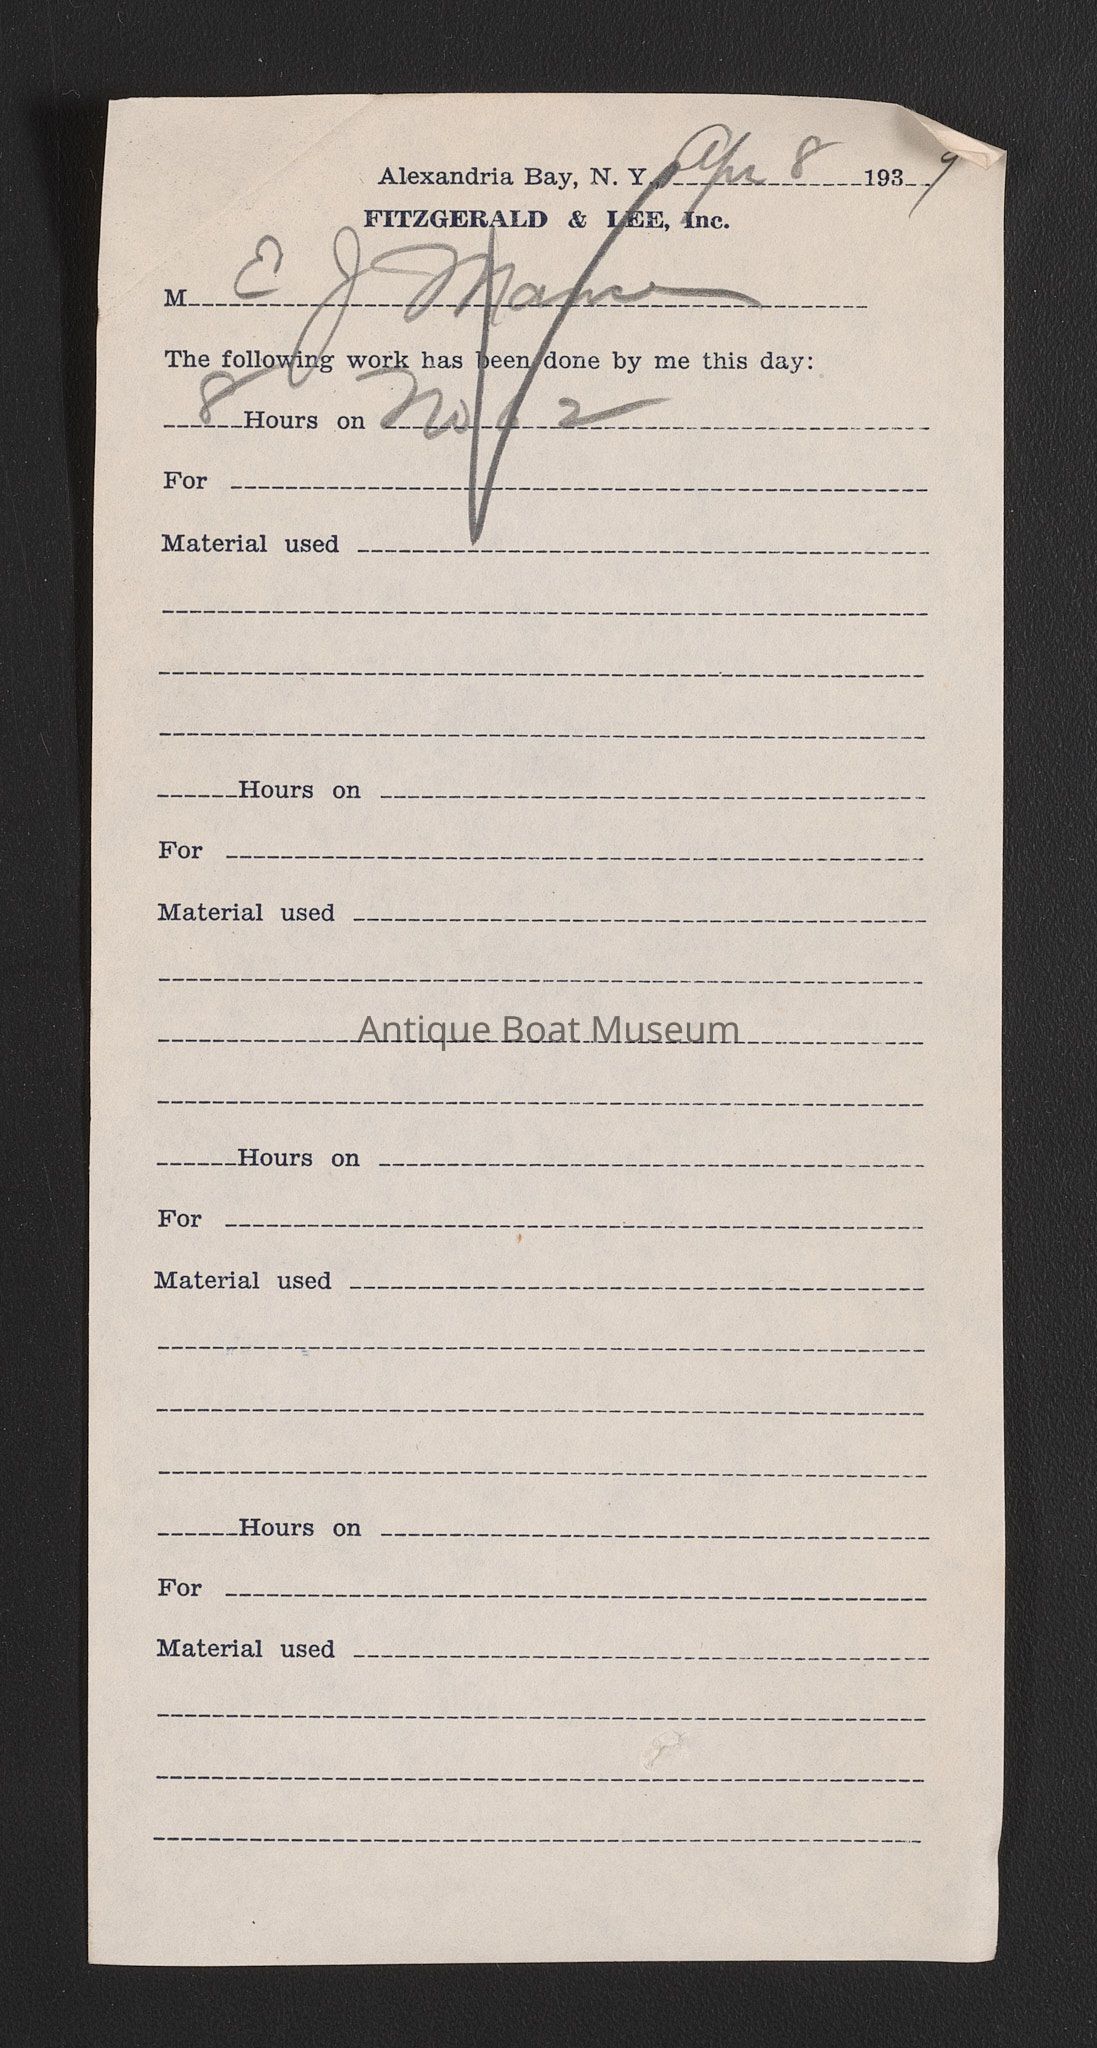 Alexandria Bay, N. Y., Apr 8 1939
FITZGERALD & LEE, Inc.
M E J
The following work has been done by me this day:
8 Hours on No 2
For
Material used
Hours on
For
Material used
Antique Boat Museum
Hours on
For
Material used
Hours on
For
Material used